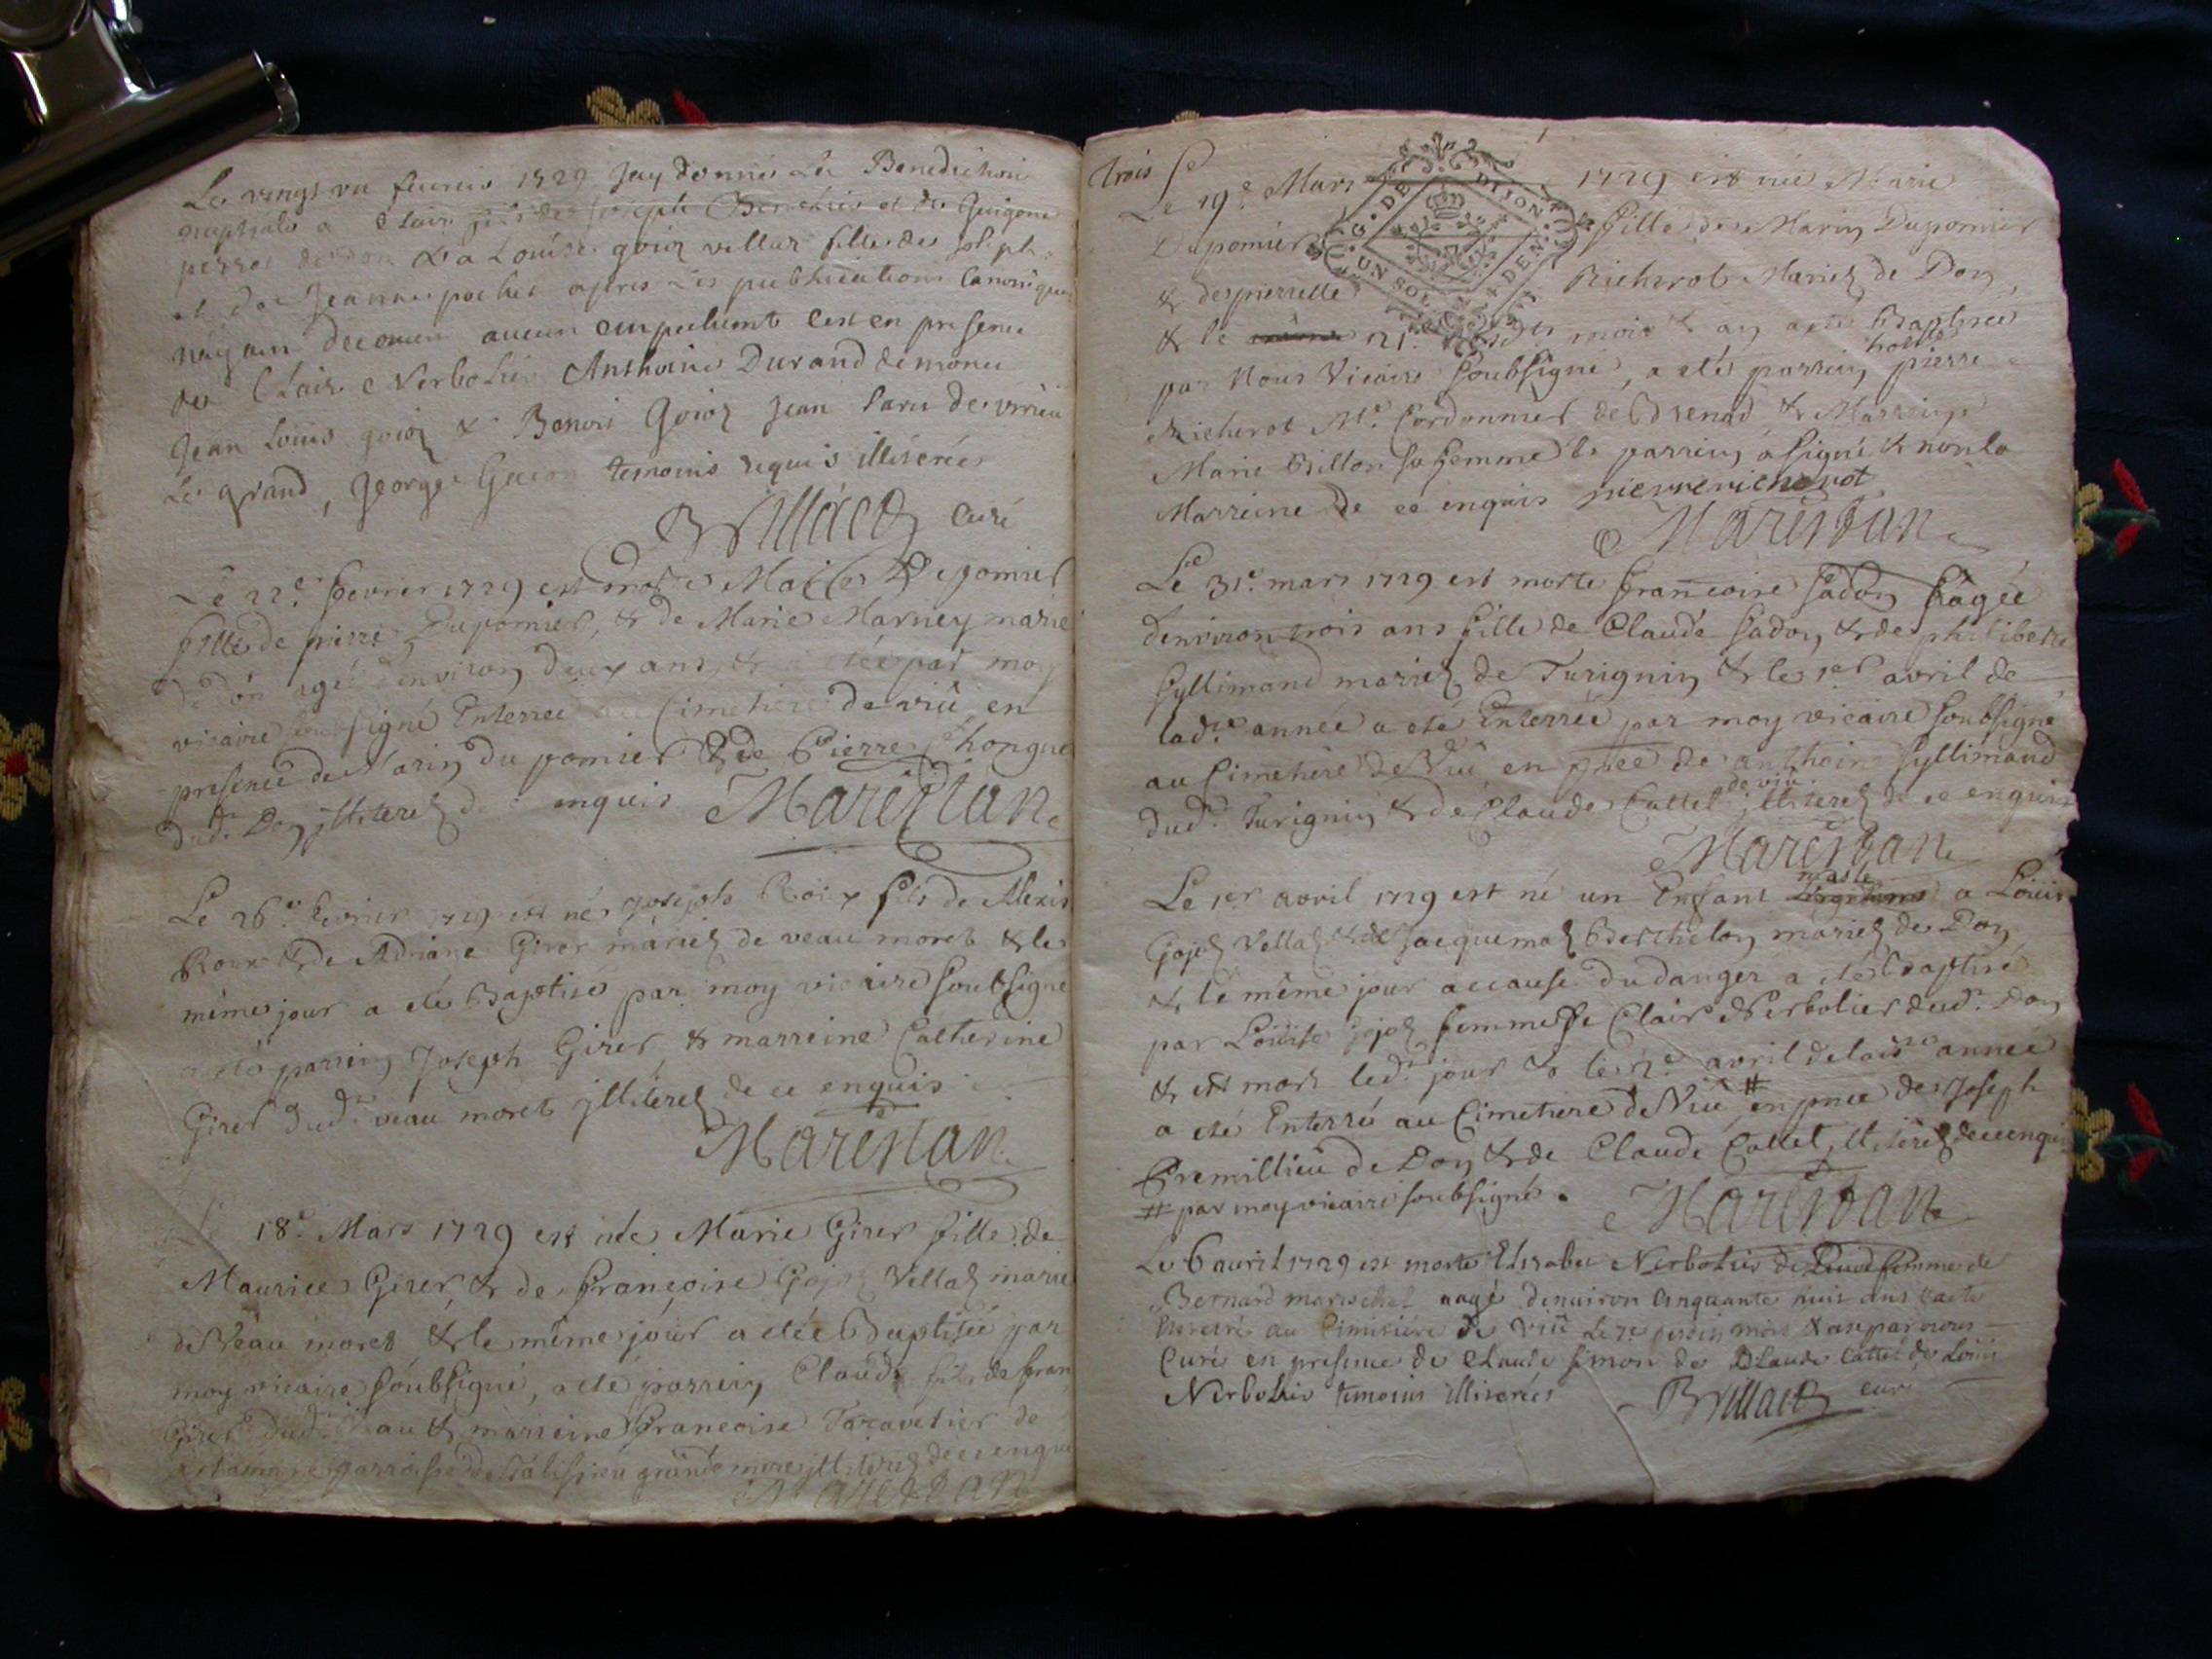 Le vingt un feuvrie 1729 Jay donnés La Benediction
nuptiale a Clair fils de Joseph et de
perrot de don & a Louise goioz vellaz fille de Joseph
et de Jeanne pochet apres Les publications Canonique
nayam decouvert aucun empechemt c'est en presence
de Claire Nerbolier Anthoine Durand
Jean Louis goioz & Benois Goioz Jean de virieu
Le grand, George temoins requis illiterés
Brillact curé
Le 22e. fevrier 1729 est morte Dupomier
fille de pierre Dupomier, & de Marie Marney marié
de don agée denviron deux ans, & a etée par moy
vicaire soubsigné Enterree au Cimetiere de viû en
presence de Marin du pomier & de Pierre
dudt. Don illiterez de enquis Marestan
Le 26e. fevrier 1729 est né Joseph Roux fils de Alexis
Roux & de Adriane Girer mariez de veau moret & le
même jour a eté Baptisé par moy vicaire soubsigné
a eté parrein Joseph Girer & marreine Catherine
Girer dudt. veau moret illiterez de ce enquis
Marestan
Le 18e. Mars 1729 est née Marie Girer fille de
Maurice Girer, & de Françoise Gojoz Vellaz marié
de Veau moret & le même jour a etée Baptisée par
moy vicaire soubsigné, a eté parrein Claude fils de fran
Girer dudt. veau & marreine Françoise de
parroisse de grande mere illiterez de ce enqui
Marestan
trois
G. DE DIJON
UN SOL DEN
Le 19e. Mars 1729 est née Marie
Dupomier fille de Marin Dupomier
& de pierrette Richerot Mariez de Don
& le 21e. mois & an a eté Baptisée
par Nous Vicaire soubsigné, a eté parrein pierre
Richerot Me. Cordonnier de Brenod & Marreine
Marie Billon sa femme le parrein a signé & non la
Marreine de ce enquis pierre richerot
Marestan
Le 31e. mars 1729 est morte françoise Sadon âgée
denviron trois ans fille de Claude Sadon & de philiberte
Syllimand mariez de Turignin & le 1er avril de
ladte. année a eté Enterrée par moy vicaire soubsigné
au Cimetiere de Viû en pnce de anthoine Syllimand
dudt. Turignin & de Claude Cattet de viû illiterez de ce enquis
Marestan
Le 1er avril 1729 est né un Enfant masle a Louis
Gojoz Vellaz & de Jacquemaz Berthelon mariez de Don
& le même jour accause du danger a eté Baptisé
par Louise Gojoz femme de Clair Nerbolier dudt. Don
& est mort ledt. jour & le 2e. avril de ladte année
a eté Enterré au Cimetiere de Viû # en pnce de Joseph
Premillieu de Don & de Claude Cattet illiterez de ce enquis
# par moy vicaire soubsigné. Marestan
Le 6 avril 1729 est morte Elisabet Nerbolier de femme de
Bernard marechal aagé denuiron cinquante huit ans
enterré au Cimitiére de viû Le 7e mois & an par nous
Curé en presence de Claude Simon de Claude Cattet de Louis
Nerbolier temoins illiterées Brillact curé